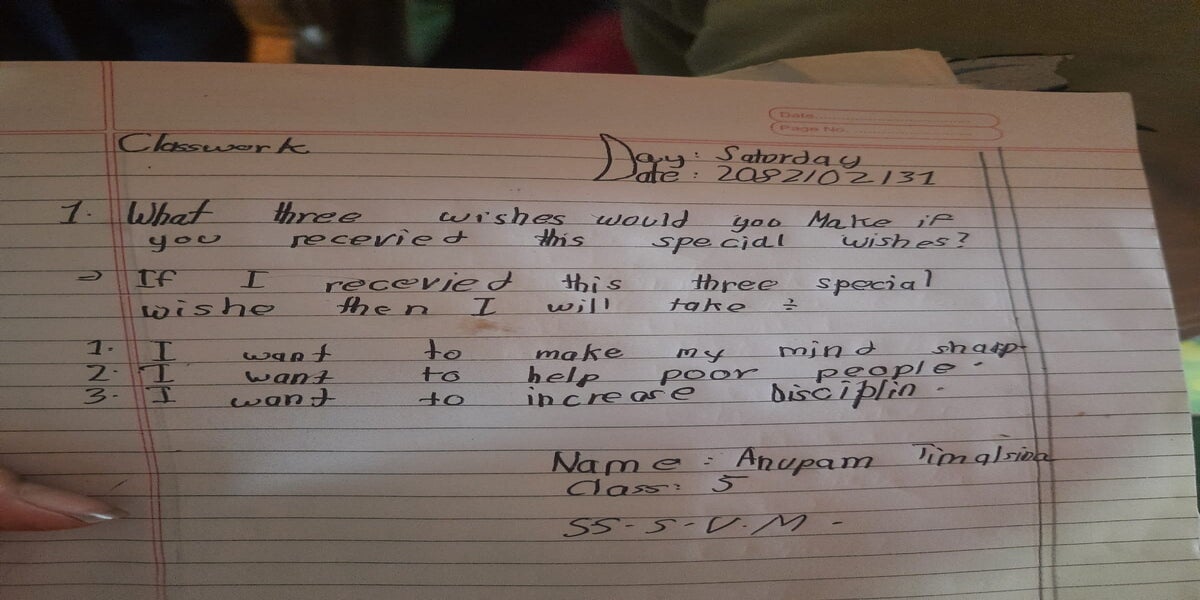 Date
Page No.
Classwork
Day: Satorday
Date: 2082/02/31
1. What three wishes would yoo Make if
you recevied this special wishes?
⇒ If I recevied this three special
wishe then I will take ÷
1. I want to make my mind sharp
2. I want to help poor people.
3. I want to increase Disciplin.
Name: Anupam Timalsina
Class: 5
SS-S-V.M-